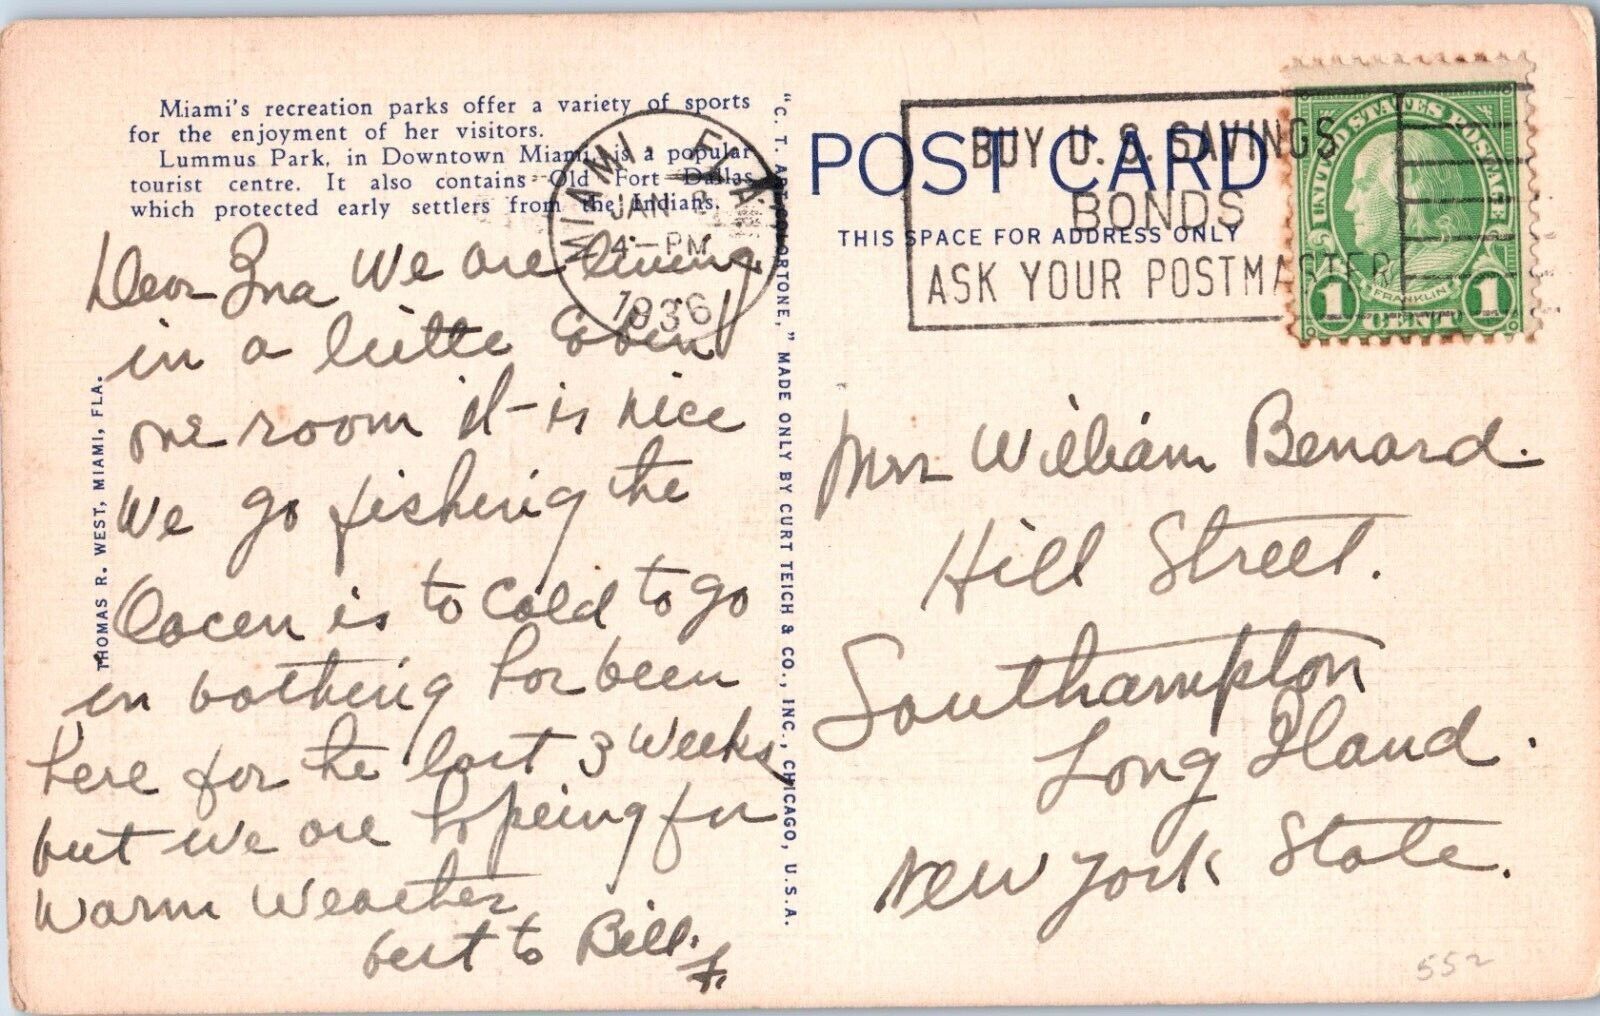 Miami's recreation parks offer a variety of sports
for the enjoyment of her visitors.
Lummus Park, in Downtown Miami, is a popular
tourist centre. It also contains Old Fort Dallas
which protected early settlers from the Indians.
THOMAS R. WEST, MIAMI, FLA.
Dear Ina We are living
in a little Cabin
one room it is nice
We go fishing the
Oocen is to Cold to go
in bathing has been
here for the last 3 weeks
but we are hopeing for
warm weather
best to Bill.
"C. T. ART-COLORTONE," MADE ONLY BY CURT TEICH & CO., INC., CHICAGO, U.S.A.
MIAMI, FLA.
JAN
4-PM
1936
POST CARD
THIS SPACE FOR ADDRESS ONLY
BUY U. S. SAVINGS
BONDS
ASK YOUR POSTMASTER
UNITED STATES POSTAGE
FRANKLIN
1 CENT 1
Mrs William Benard.
Hill Street.
Southampton
Long Iland.
New York State.
552